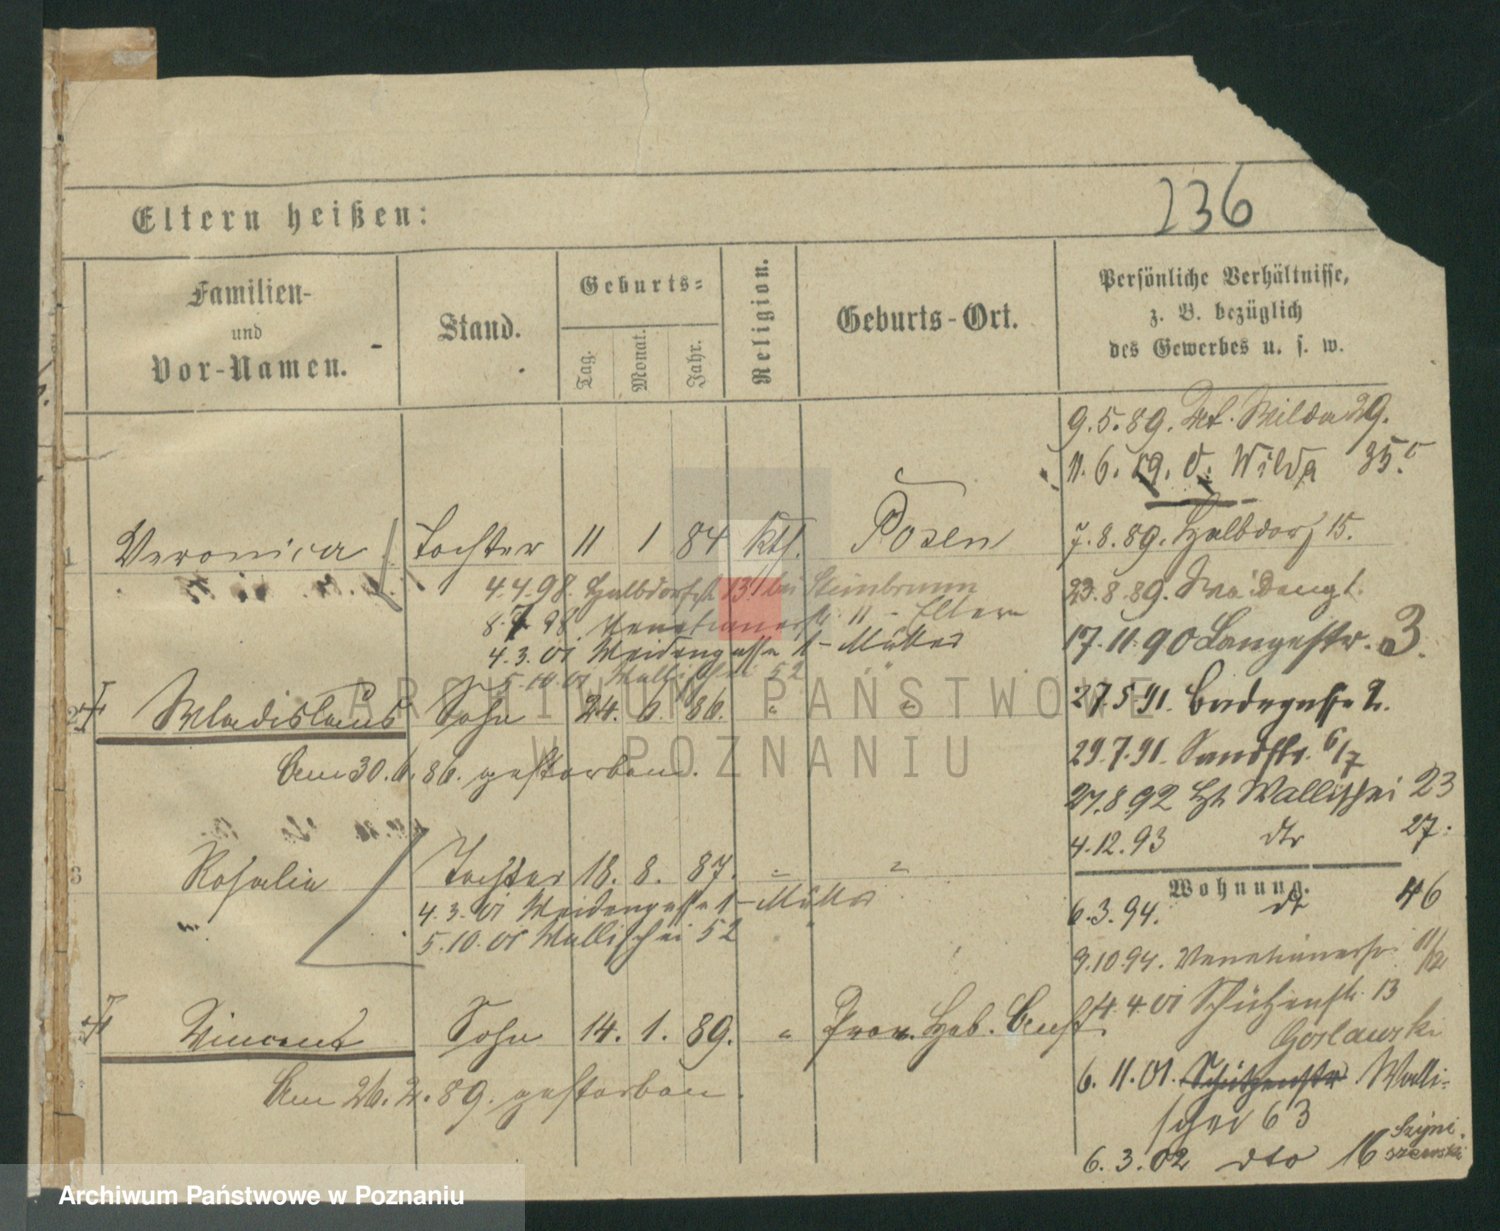 236
Eltern heißen:
Familien-
und
Vor-Namen.
Stand.
Geburts-
Tag.
Monat.
Jahr.
Religion.
Geburts-Ort.
Persönliche Verhältnisse,
z. B. bezüglich
des Gewerbes u. s. w.
9.5.89. Wilda 29.
11.6.89. O. Wilda 35
7.8.89. Halbdorf 15.
1 Veronica Tochter 11 1 84 kth. Posen
4.4.98. Halbdorfstr. 13 I bei Steinbrunn
23.8.89.
8.7.98. Venetianerstr. 11 - Eltern
4.3.01 Weidengasse 1 - Mutter
17.11.90 Langestr. 3.
5.10.01 Wallischei 52 "
2 Wladislaus Sohn 24. 6. 86. " "
27.5.91. 2.
Am 30.6.86. gestorben.
29.7.91. Sandstr. 6/7
27.8.92 Wallischei 23
4.12.93 dto 27.
3 Rosalie Tochter 18. 8. 87. " "
Wohnung.
4.3.01 Weidengasse 1 - Mutter
6.3.94. dto 46
5.10.01 Wallischei 52 "
9.10.94. Venetianerstr. 11/12
4.4.01 Schützenstr. 13
Vincent Sohn 14. 1. 89. " Prov. Heb. Anst.
Goslawski
6.11.01. Schützenstr Walli-
schei 63
Am 26.2.89. gestorben.
6.3.02 dto 16
ARCHIWUM PAŃSTWOWE
W POZNANIU
Archiwum Państwowe w Poznaniu